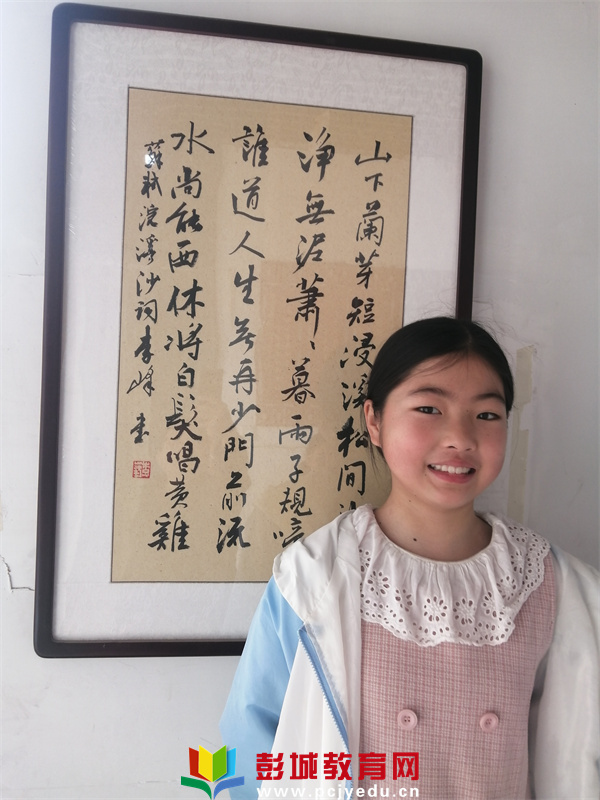 山下蘭芽短浸溪松間
淨無泥蕭〻暮雨子規啼
誰道人生無再少門前流
水尚能西休將白髮唱黃雞
蘇軾浣溪沙詞李峰書
彭城教育网
www.pcjyedu.cn